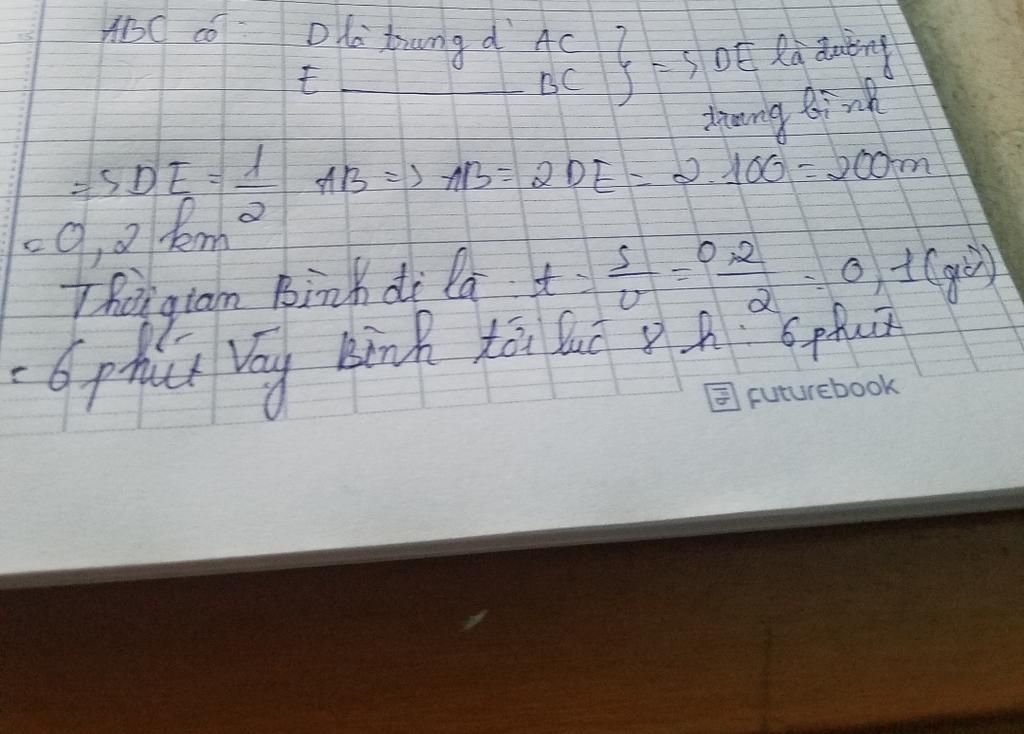 ABC có D là trung đ' AC } => DE là đường
E ________ BC } trung bình
=> DE = 1/2 AB => AB = 2DE = 2.100 = 200m
= 0,2 km
Thời gian Bình đi là t = s/v = 0,2/2 = 0,1 (giờ)
= 6 phút Vậy Bình tới lúc 8 h : 6 phút
FUTUREBOOK